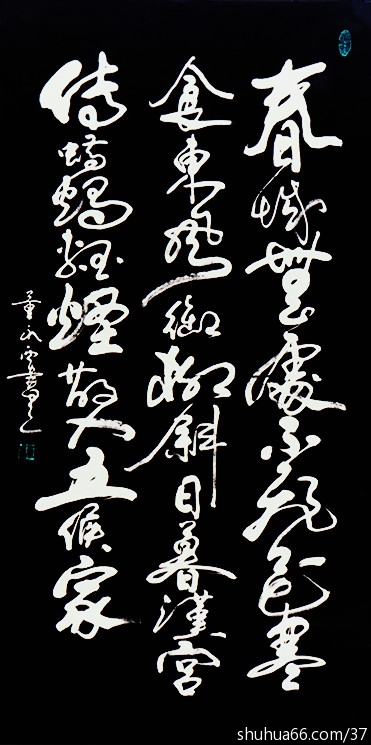 春城無處不飛花寒
食東風御柳斜日暮漢宮
傳蠟燭輕煙散入五侯家
董永
shuhua66.com/37